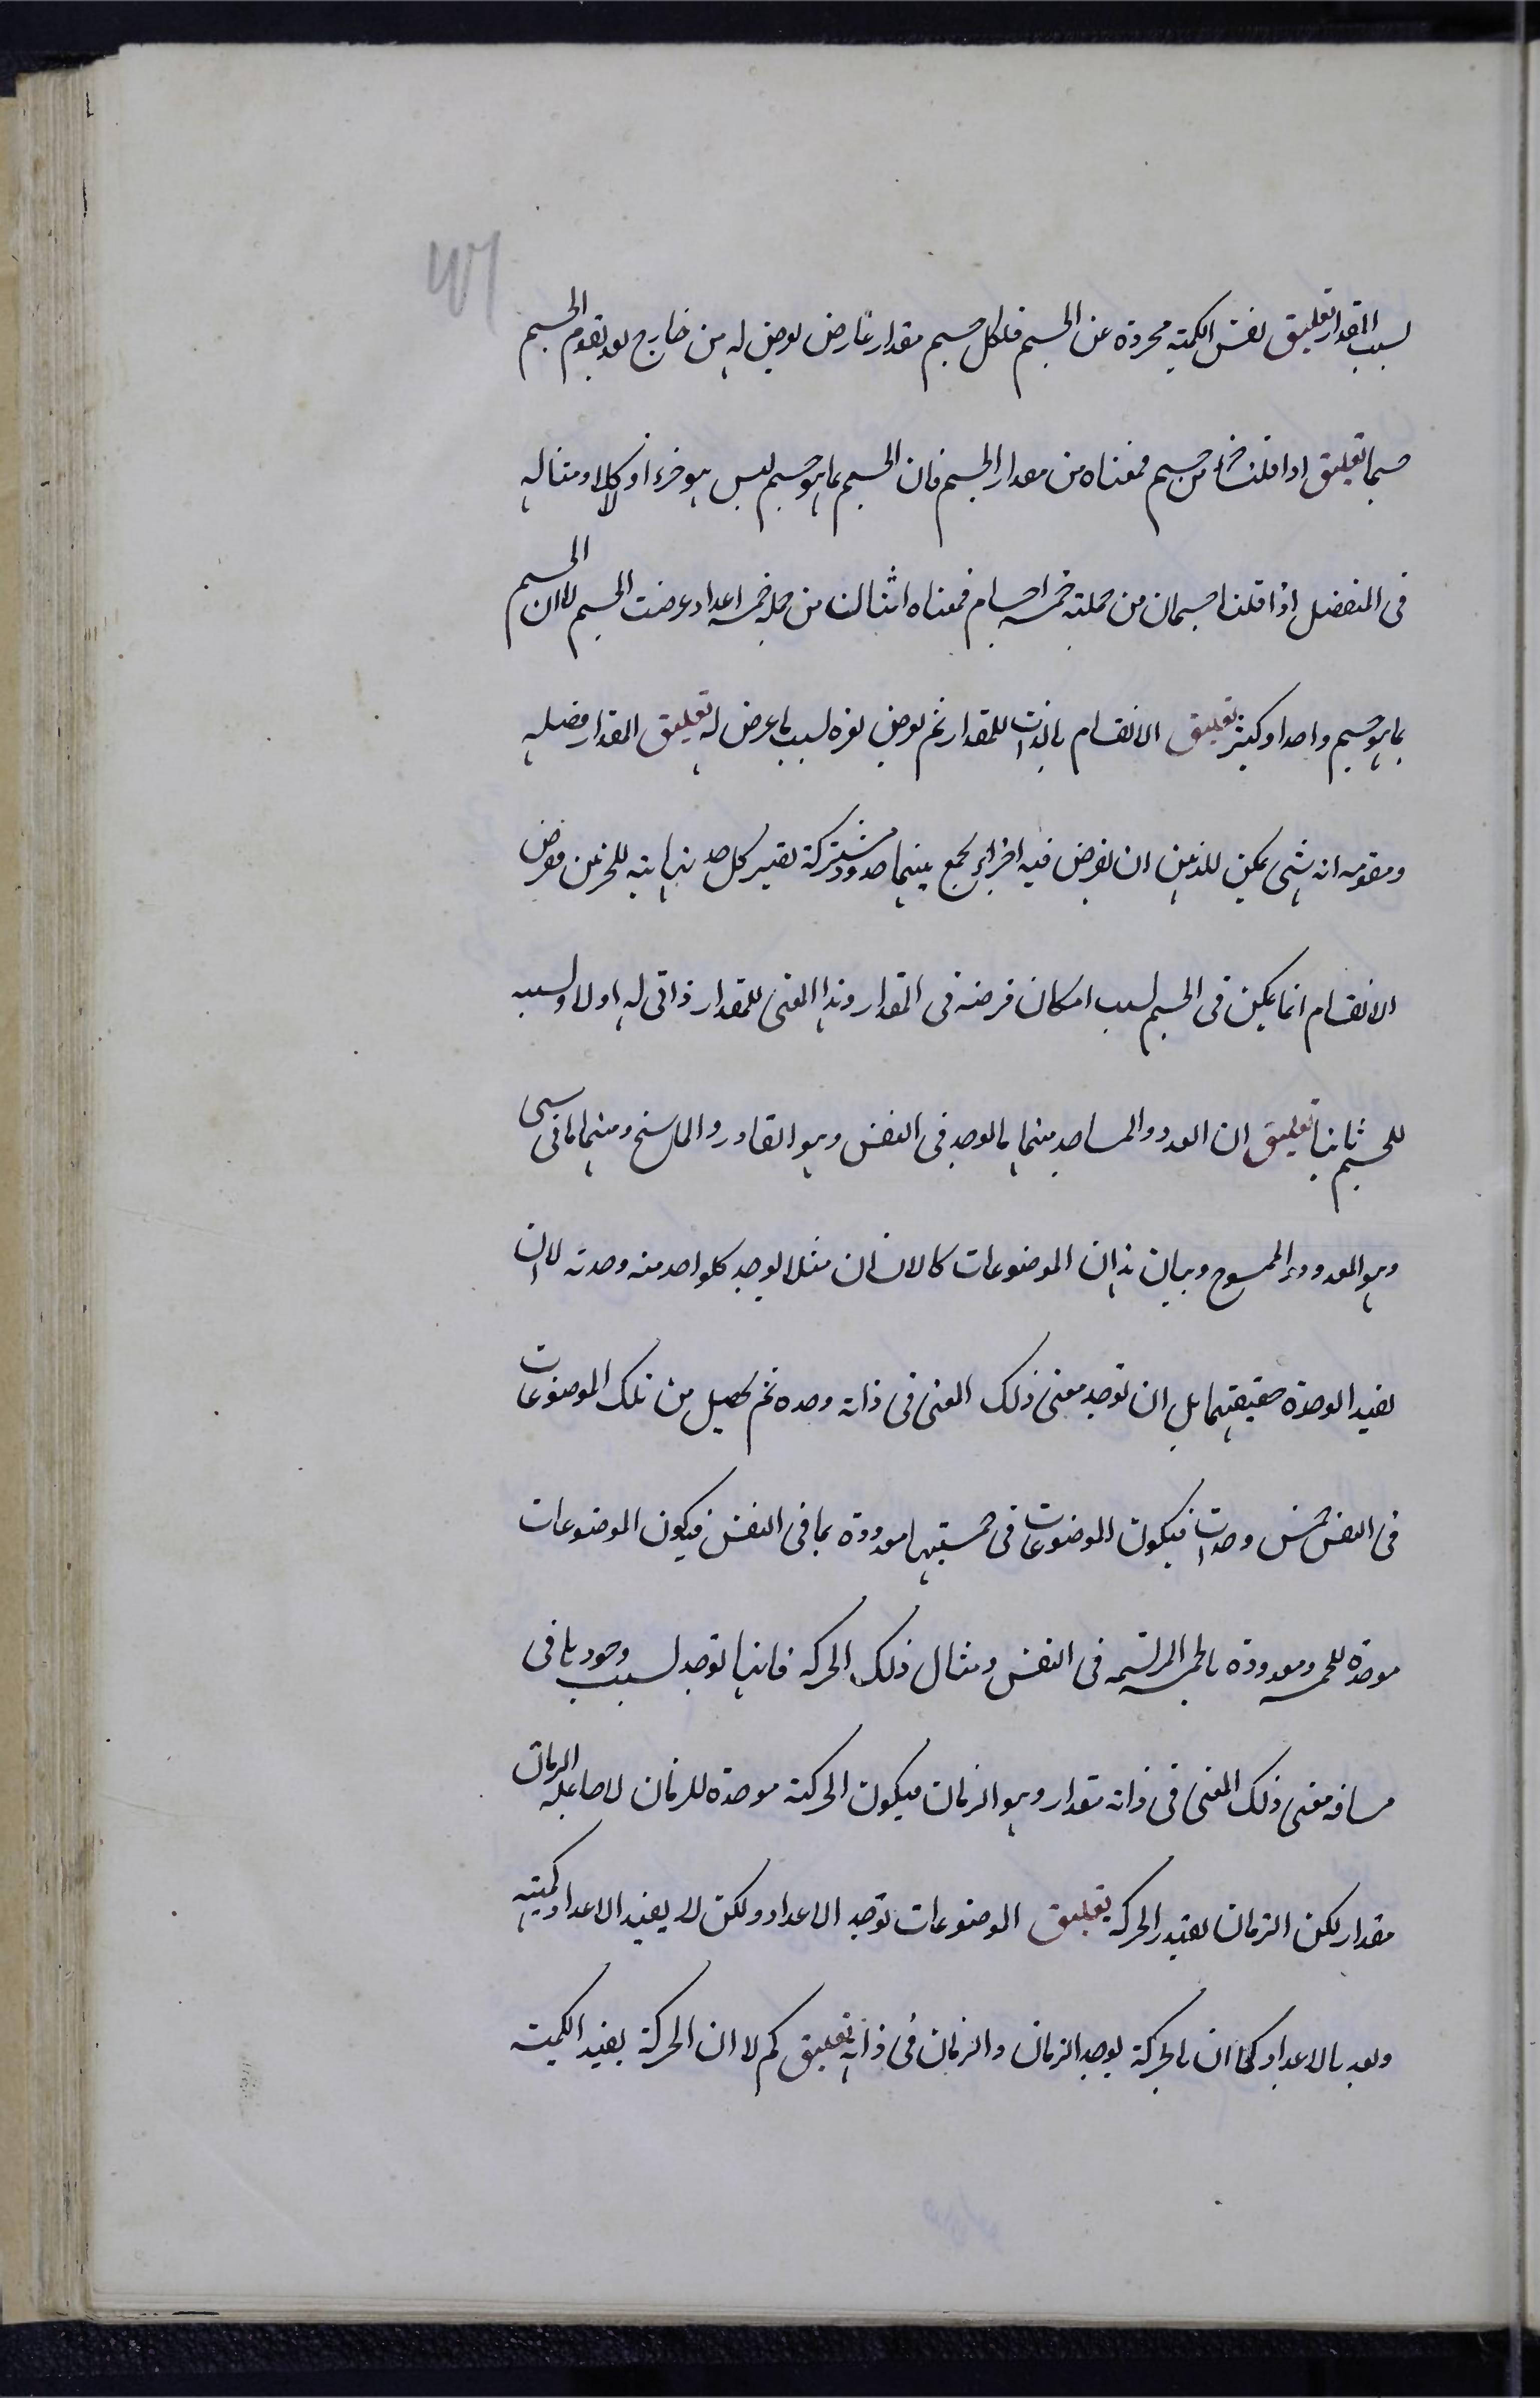 لسبب المقدار تعليق نفس الكمية مجردة عن الجسم فلكل جسم مقدار عارض يعرض له من خارج بعد تقوم الجسم
جسما تعليق اذا قلنا جزء من جسم فمعناه من مقدار الجسم فان الجسم بما هو جسم ليس هو جزءا او كلا ومثاله
فى المنفصل اذا قلنا جسمان من جملة خمسة اجسام فمعناه اثنان من جملة خمسة اعداد عرضت الجسم لا ان الجسم
بما هو جسم واحد او كثير تعليق الانقسام بالذات للمقدار ثم يعرض لغيره لسبب ما عرض له تعليق المقدار فصله
ومقومه انه شىء يمكن للذهن ان يفرض فيه اجزاء يجمع بينهما حدود مشتركة تصير كل حد نهاية للجزئين وفرض
الانقسام انما يمكن فى الجسم لسبب امكان فرضه فى المقدار وهذا المعنى للمقدار ذاتى له اولا ولسببه
للجسم ثانيا تعليق ان العدد والمساحة منهما ما يوجد فى النفس وهو العادد والماسح ومنهما ما فى شىء
وهو المعدود والممسوح وبيان هذا ان الموضوعات كالانسان مثلا يوجد كلواحد منه وحدته لا ان
يفيد الوحدة حقيقتهما بل ان توجد معنى ذلك المعنى فى ذاته وحده ثم يحصل من تلك الموضوعات
فى النفس خمس وحدات فيكون الموضوعات فى خمستيها معدودة بما فى النفس فيكون الموضوعات
موجدة للخمسة ومعدودة بالخمسة المرتسمة فى النفس ومثال ذلك الحركة فانها توجد لسبب وجودها فى
مسافة معنى ذلك المعنى فى ذاته مقدار وهو الزمان فيكون الحركة موجدة للزمان لا جاعلة الزمان
مقدار لكن الزمان يقدر الحركة تعليق الموضوعات توجد الاعداد ولكن لا يفيد الاعداد كميته
وتعد بالاعداد كما ان بالحركة يوجد الزمان والزمان فى ذاته تعليق كم لا ان الحركة يفيد الكمية